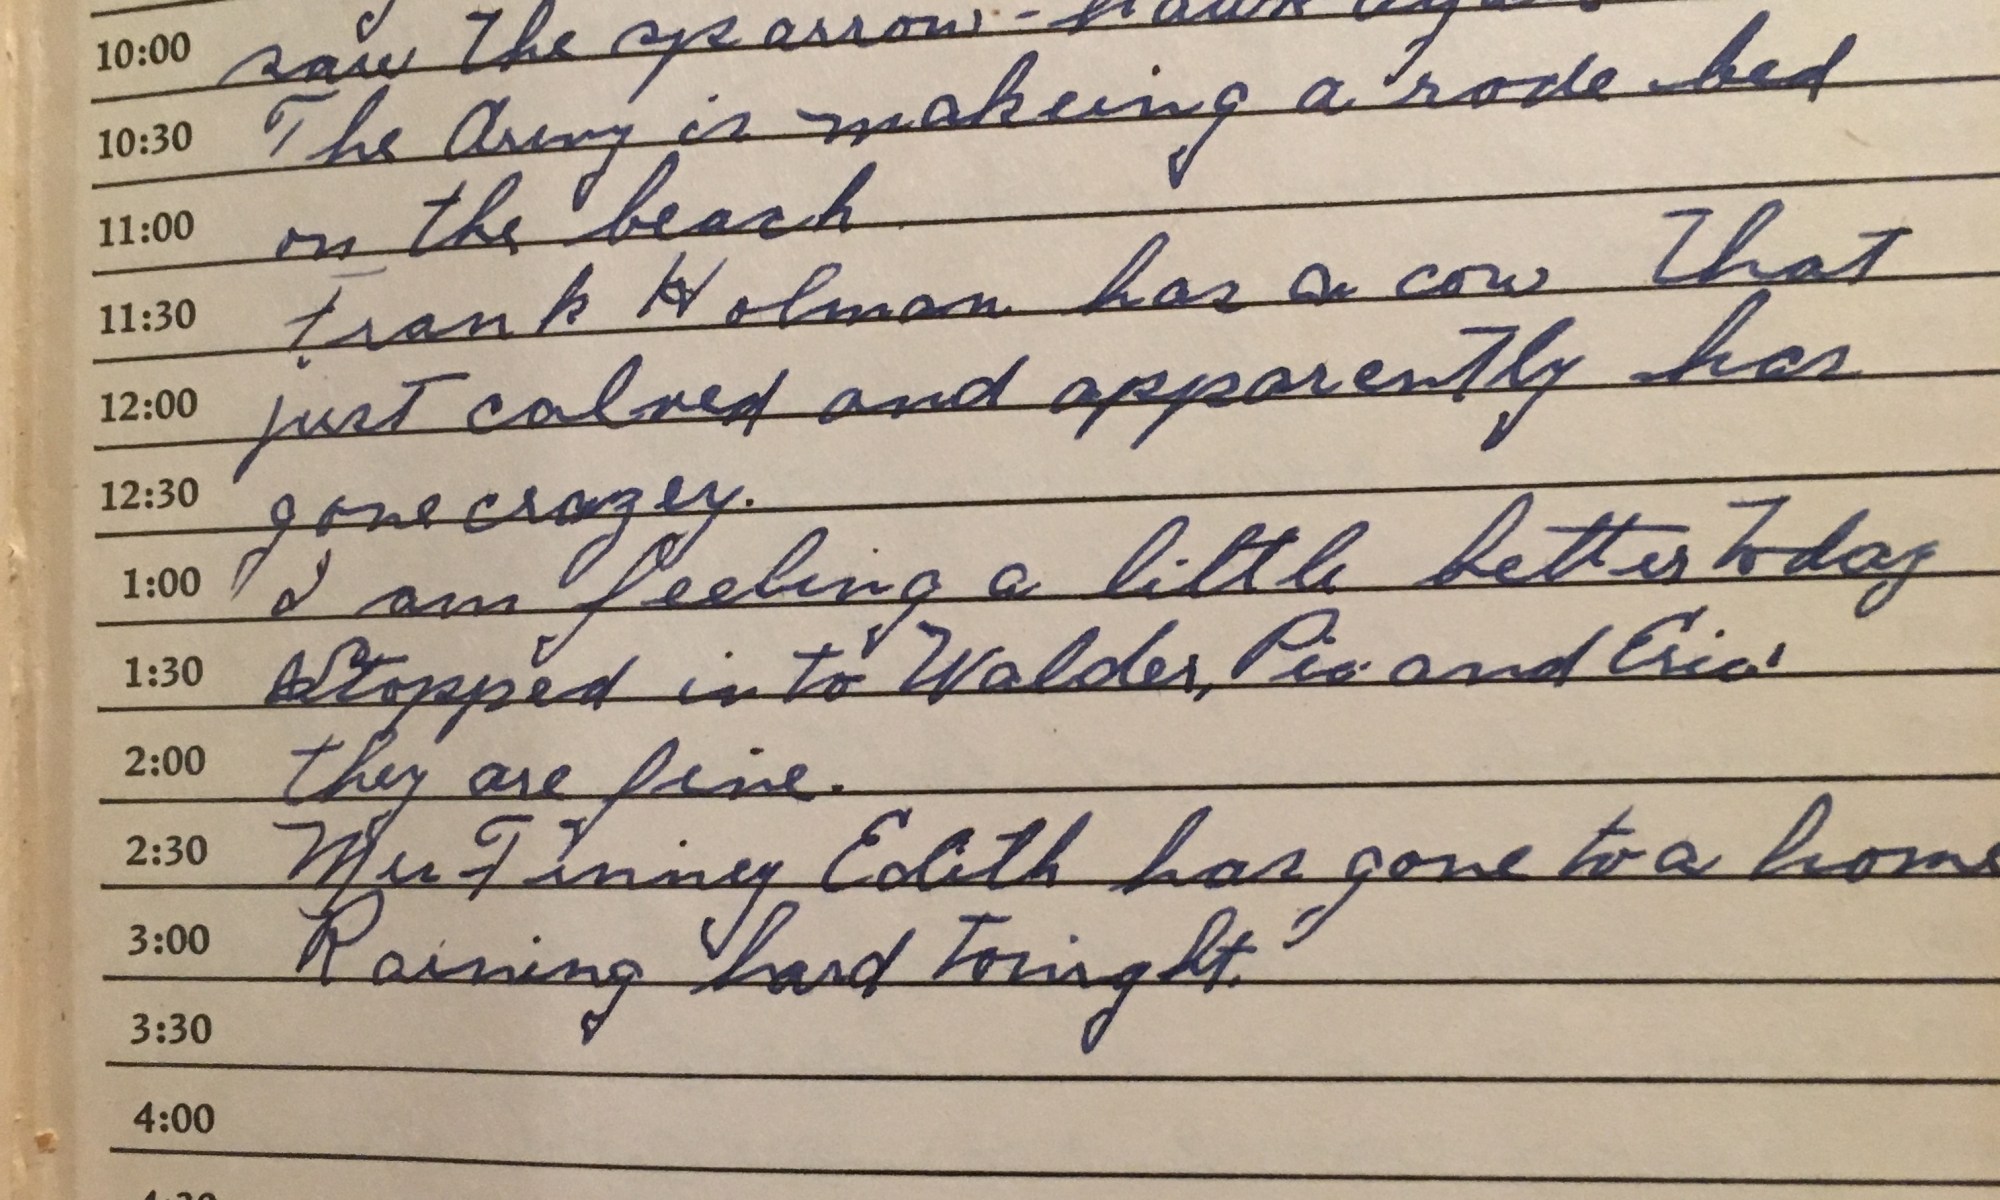 10:00 saw the sparrow-hawk
10:30 The Army is makeing a rode bed
11:00 on the beach
11:30 Frank Holman has a cow that
12:00 just calved and apparently has
12:30 gone crazey.
1:00 I am feeling a little better today
1:30 Stopped in to Walder, Pia and Eric
2:00 they are fine.
2:30 Tinney Edith has gone to a home
3:00 Raining hard tonight.
3:30
4:00
4:30